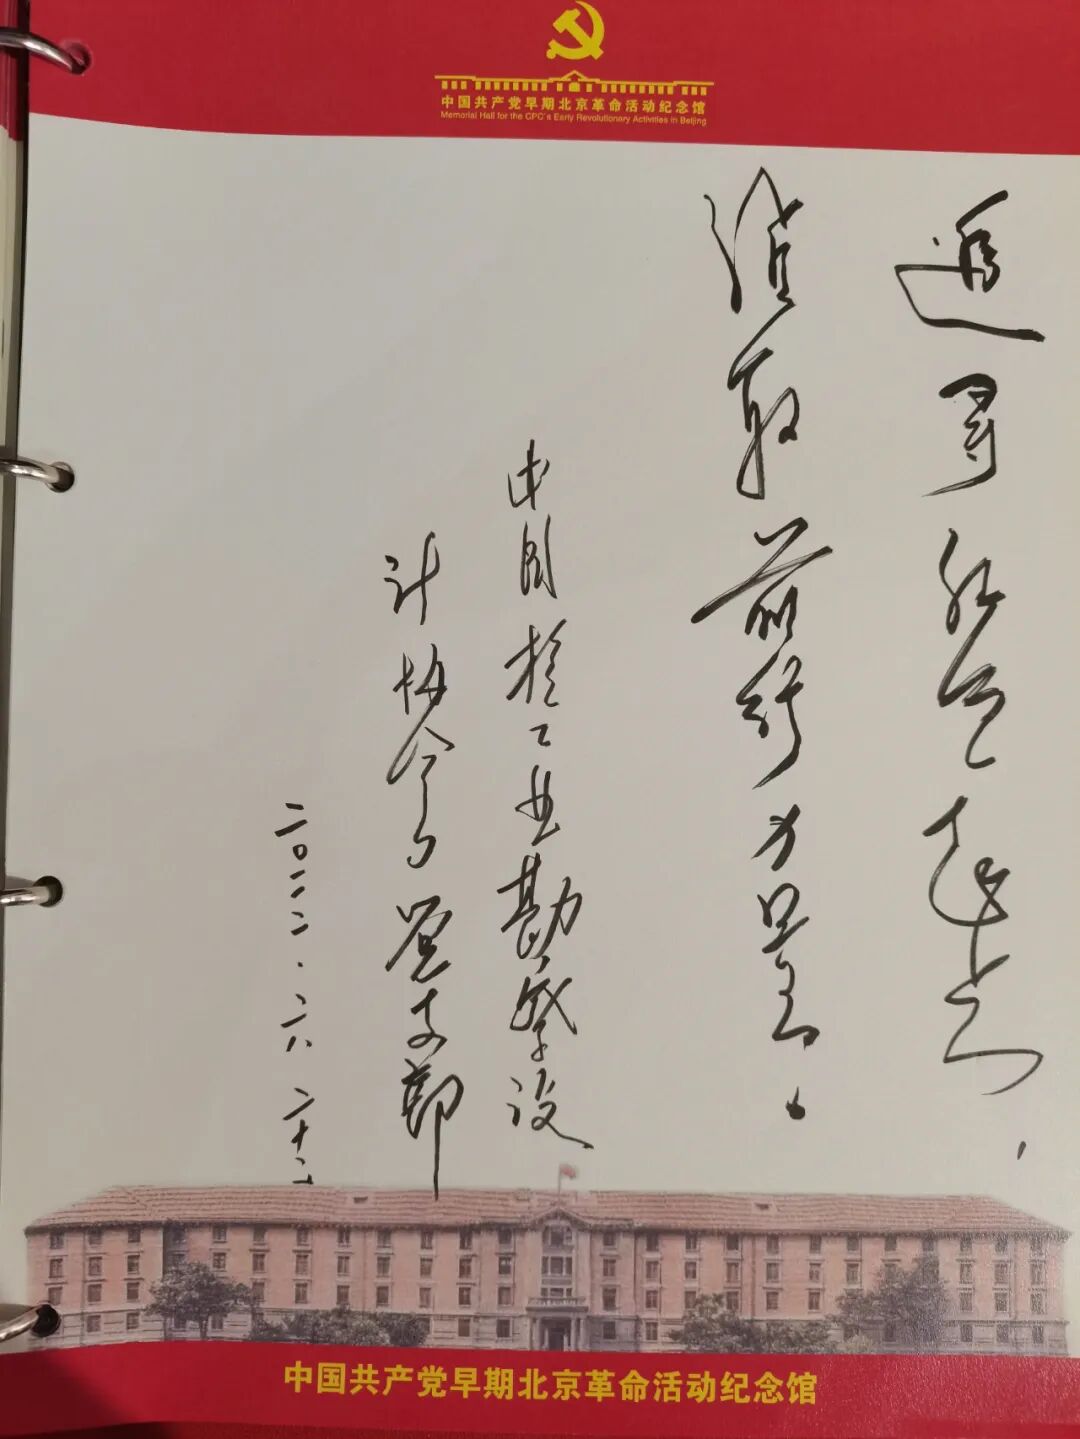 中国共产党早期北京革命活动纪念馆
Memorial Hall for the CPC's Early Revolutionary Activities in Beijing
追寻红色
汲取前行力量。
中国核工业勘察设
计协会党支部
二〇二二.六.二十二
中国共产党早期北京革命活动纪念馆